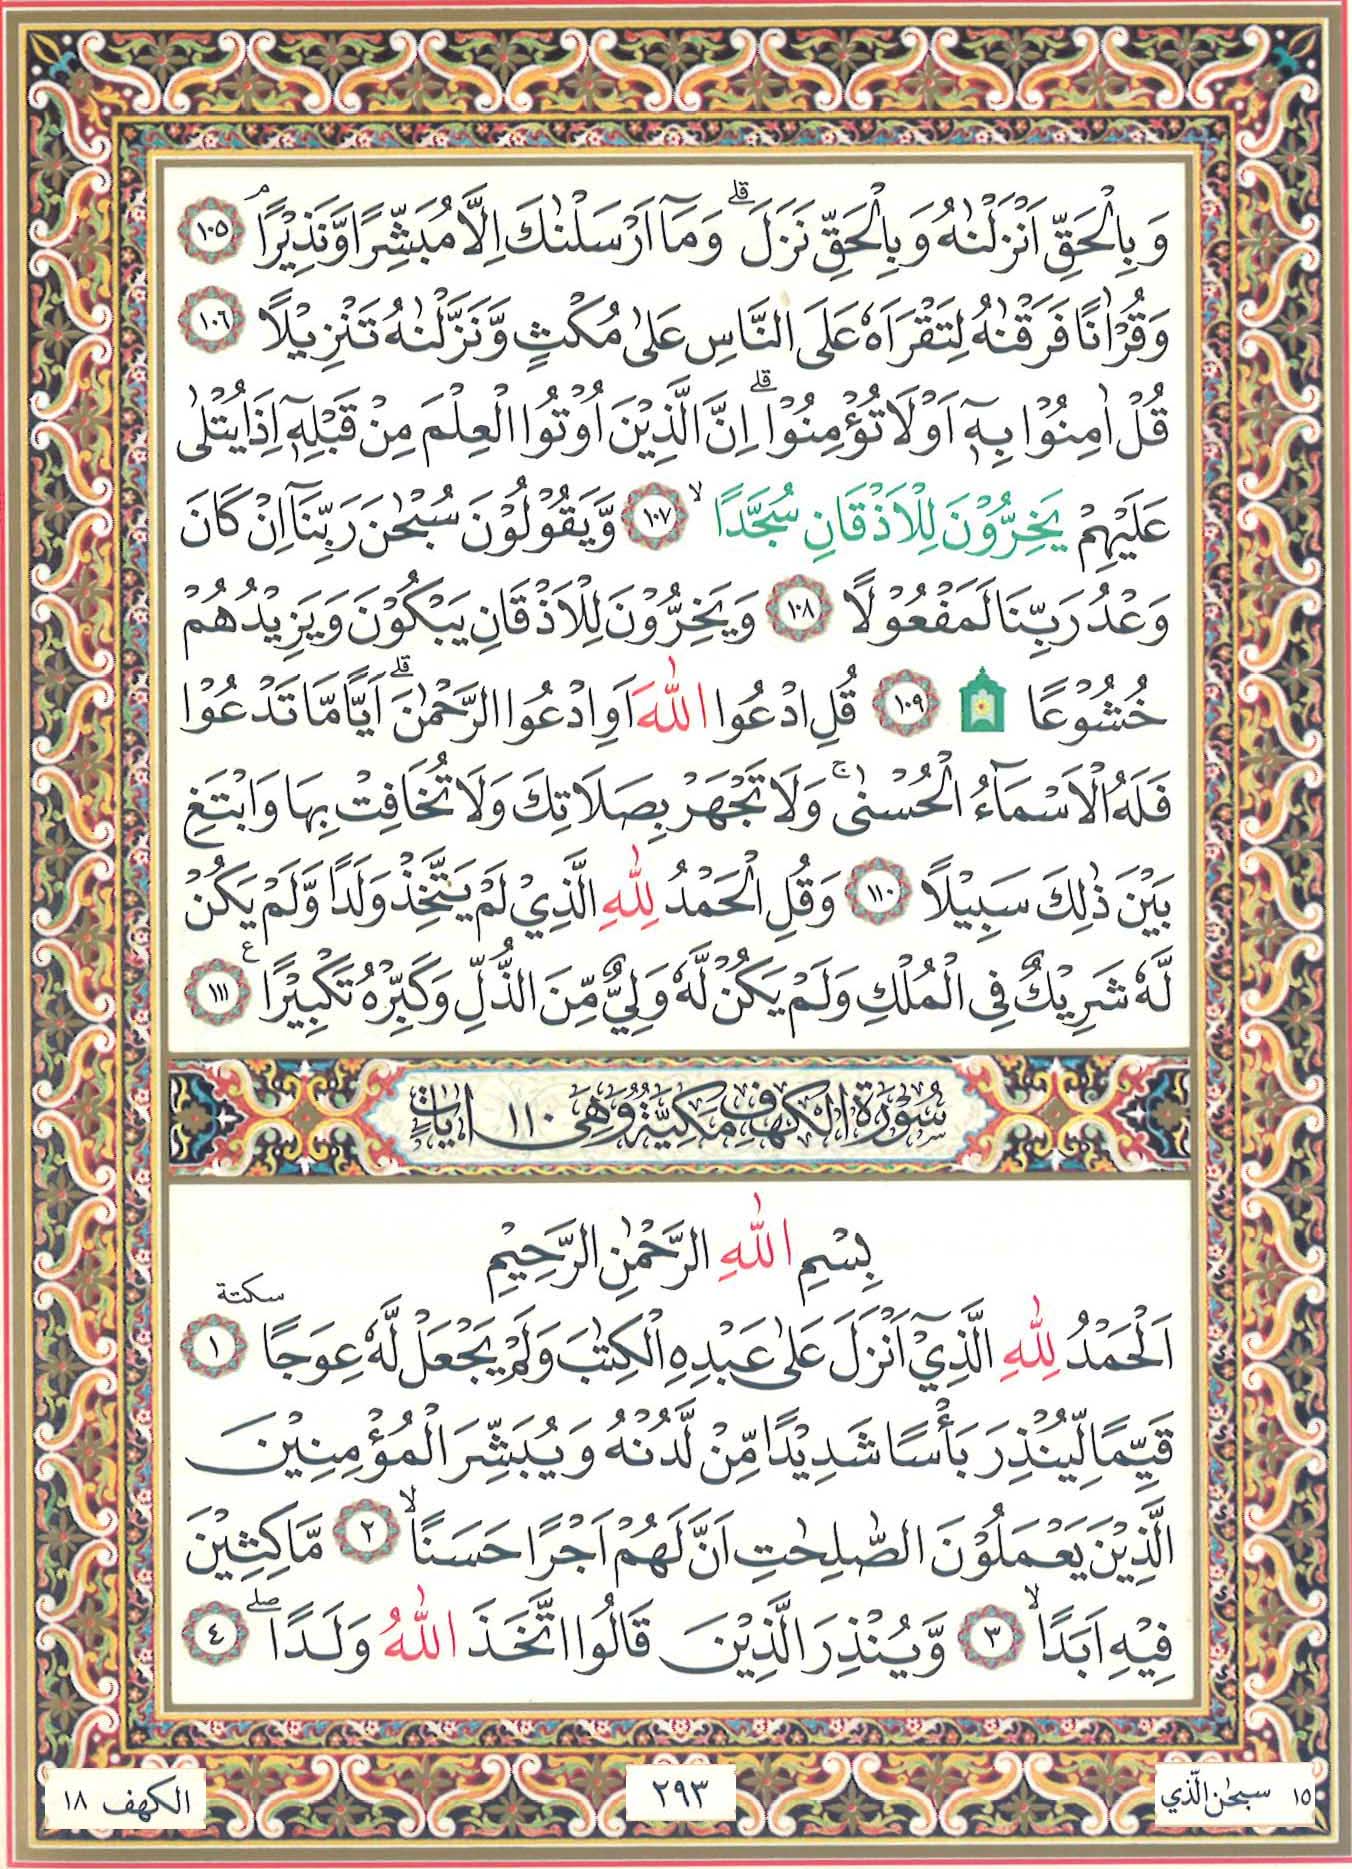 وَبِالْحَقِّ اَنْزَلْنٰهُ وَبِالْحَقِّ نَزَلَ ۗ وَمَآ اَرْسَلْنٰكَ اِلَّا مُبَشِّرًا وَّنَذِيْرًا ۘ ١٠٥
وَقُرْاٰنًا فَرَقْنٰهُ لِتَقْرَاَهٗ عَلَى النَّاسِ عَلٰى مُكْثٍ وَّنَزَّلْنٰهُ تَنْزِيْلًا ١٠٦
قُلْ اٰمِنُوْا بِهٖٓ اَوْ لَا تُؤْمِنُوْا ۗ اِنَّ الَّذِيْنَ اُوْتُوا الْعِلْمَ مِنْ قَبْلِهٖٓ اِذَا يُتْلٰى
عَلَيْهِمْ يَخِرُّوْنَ لِلْاَذْقَانِ سُجَّدًا ۙ ١٠٧ وَّيَقُوْلُوْنَ سُبْحٰنَ رَبِّنَآ اِنْ كَانَ
وَعْدُ رَبِّنَا لَمَفْعُوْلًا ١٠٨ وَيَخِرُّوْنَ لِلْاَذْقَانِ يَبْكُوْنَ وَيَزِيْدُهُمْ
خُشُوْعًا ۩ ١٠٩ قُلِ ادْعُوا اللّٰهَ اَوِ ادْعُوا الرَّحْمٰنَ ۗ اَيًّا مَّا تَدْعُوْا
فَلَهُ الْاَسْمَآءُ الْحُسْنٰى ۚ وَلَا تَجْهَرْ بِصَلَاتِكَ وَلَا تُخَافِتْ بِهَا وَابْتَغِ
بَيْنَ ذٰلِكَ سَبِيْلًا ١١٠ وَقُلِ الْحَمْدُ لِلّٰهِ الَّذِيْ لَمْ يَتَّخِذْ وَلَدًا وَّلَمْ يَكُنْ
لَّهٗ شَرِيْكٌ فِى الْمُلْكِ وَلَمْ يَكُنْ لَّهٗ وَلِيٌّ مِّنَ الذُّلِّ وَكَبِّرْهُ تَكْبِيْرًا ع ١١١
سُوْرَةُ الْكَهْفِ مَكِّيَّةٌ وَهِىَ ١١٠ اٰيَاتٍ
بِسْمِ اللّٰهِ الرَّحْمٰنِ الرَّحِيْمِ
اَلْحَمْدُ لِلّٰهِ الَّذِيْٓ اَنْزَلَ عَلٰى عَبْدِهِ الْكِتٰبَ وَلَمْ يَجْعَلْ لَّهٗ عِوَجًا سكتة ١
قَيِّمًا لِّيُنْذِرَ بَأْسًا شَدِيْدًا مِّنْ لَّدُنْهُ وَيُبَشِّرَ الْمُؤْمِنِيْنَ
الَّذِيْنَ يَعْمَلُوْنَ الصّٰلِحٰتِ اَنَّ لَهُمْ اَجْرًا حَسَنًا ۙ ٢ مَّاكِثِيْنَ
فِيْهِ اَبَدًا ۙ ٣ وَّيُنْذِرَ الَّذِيْنَ قَالُوا اتَّخَذَ اللّٰهُ وَلَدًا ۖ ٤
١٥ سبحٰن الّذي
٢٩٣
الكهف ١٨